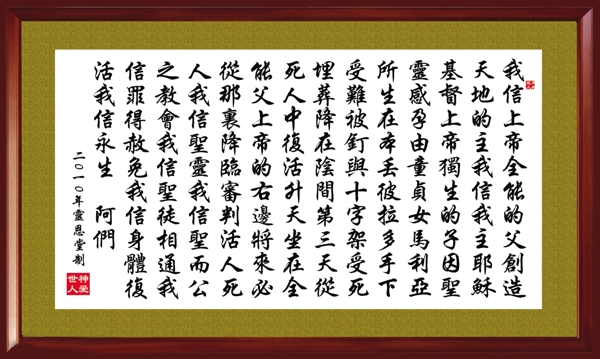 我信上帝全能的父創造
天地的主我信我主耶穌
基督上帝獨生的子因聖
靈感孕由童貞女馬利亞
所生在本丟彼拉多手下
受難被釘與十字架受死
埋葬降在陰間第三天從
死人中復活升天坐在全
能父上帝的右邊將來必
從那裏降臨審判活人死
人我信聖靈我信聖而公
之教會我信聖徒相通我
信罪得赦免我信身體復
活我信永生 阿們
二〇一〇年靈恩堂制
神愛
世人